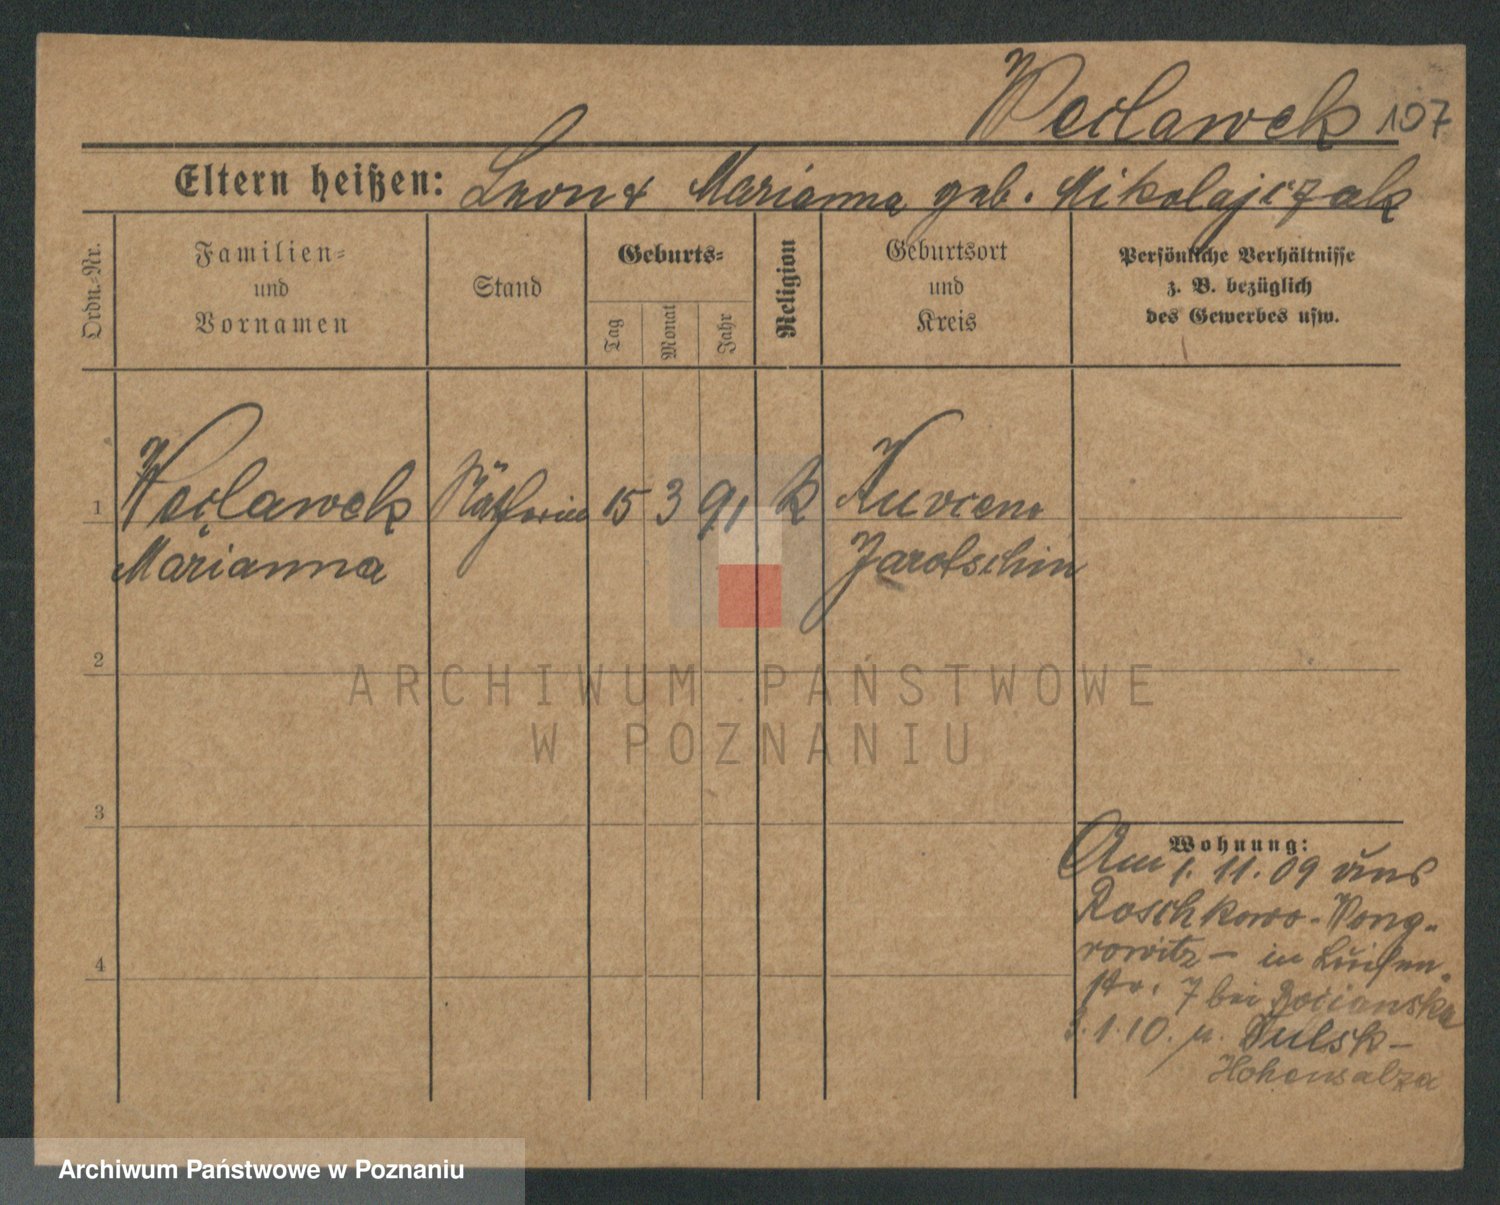 Weclawek 107
Eltern heißen: Leon & Marianna geb. Mikolajczak
Ordn.-Nr.
Familien-
und
Vornamen
Stand
Geburts-
Tag
Monat
Jahr
Religion
Geburtsort
und
Kreis
Persönliche Verhältnisse
z. B. bezüglich
des Gewerbes usw.
1 Weclawek Nätherin 15 3 91 k
Marianna Jarotschin
2
3
4
Wohnung:
Am 1. 11. 09 aus
Roschkowo-Wong-
rowitz – in Luisen-
str. 7 bei
3.1.10. n.
Hohensalza
ARCHIWUM PAŃSTWOWE
W POZNANIU
Archiwum Państwowe w Poznaniu